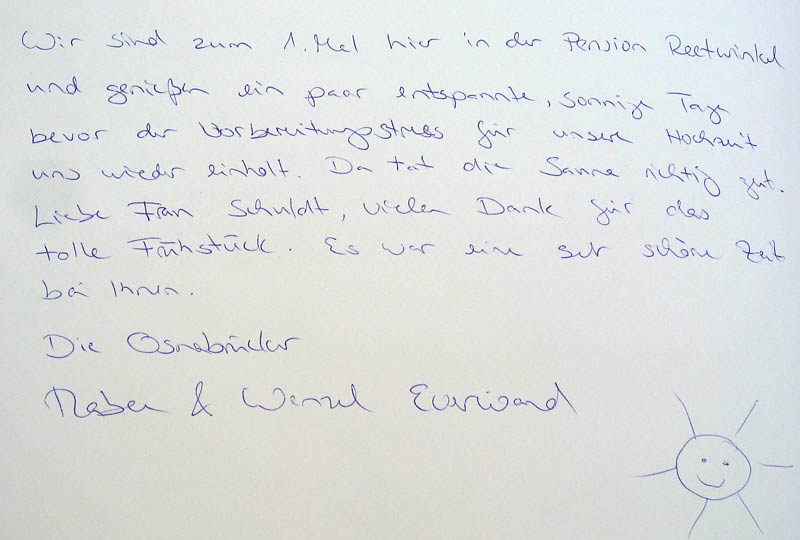 Wir sind zum 1. Mal hier in der Pension Reetwinkel
und genießen ein paar entspannte, sonnige Tage
bevor der Vorbereitungsstress für unsere Hochzeit
uns wieder einholt. Da tat die Sonne richtig gut.
Liebe Frau Schuldt, vielen Dank für das
tolle Frühstück. Es war eine sehr schöne Zeit
bei Ihnen.
Die Osnabrücker
&